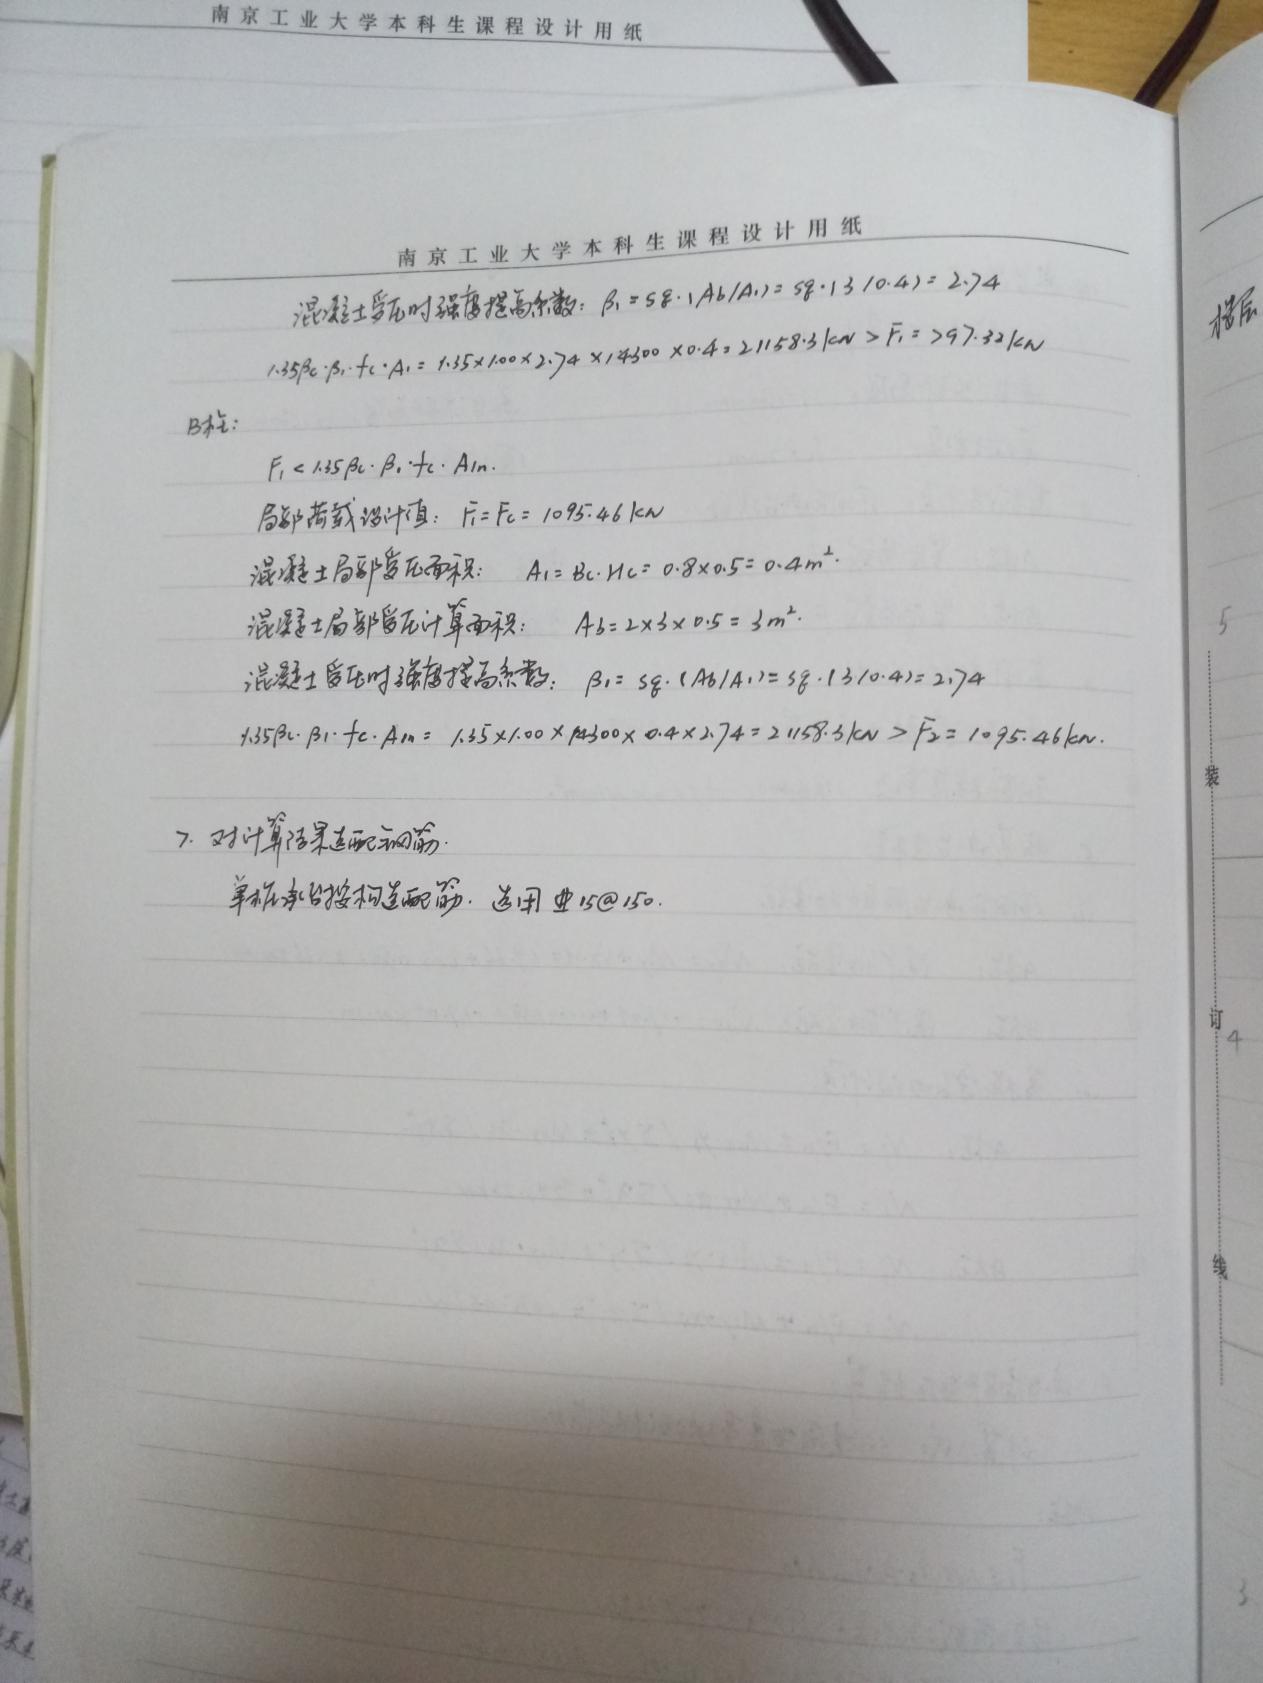 南京工业大学本科生课程设计用纸
南京工业大学本科生课程设计用纸
混凝土受压时强度提高系数: β₁=sq.(Ab/A₁)=sq.(3/0.4)=2.74
1.35βc·β₁·fc·A₁=1.35×1.00×2.74×14300×0.4=21158.3kN>F₁=797.32kN
B柱:
F₁<1.35βc·β₁·fc·A₁n.
局部荷载设计值: F₁=Fc=1095.46kN
混凝土局部受压面积: A₁=Bc·Hc=0.8×0.5=0.4m².
混凝土局部受压计算面积: Ab=2×3×0.5=3m².
混凝土受压时强度提高系数: β₁=sq.(Ab/A₁)=sq.(3/0.4)=2.74
1.35βc·β₁·fc·A₁n=1.35×1.00×14300×0.4×2.74=21158.3kN>F₂=1095.46kN.
7. 对计算结果选配钢筋.
单桩承台按构造配筋. 选用 15@150.
楼层
5
装
订
4
线
3